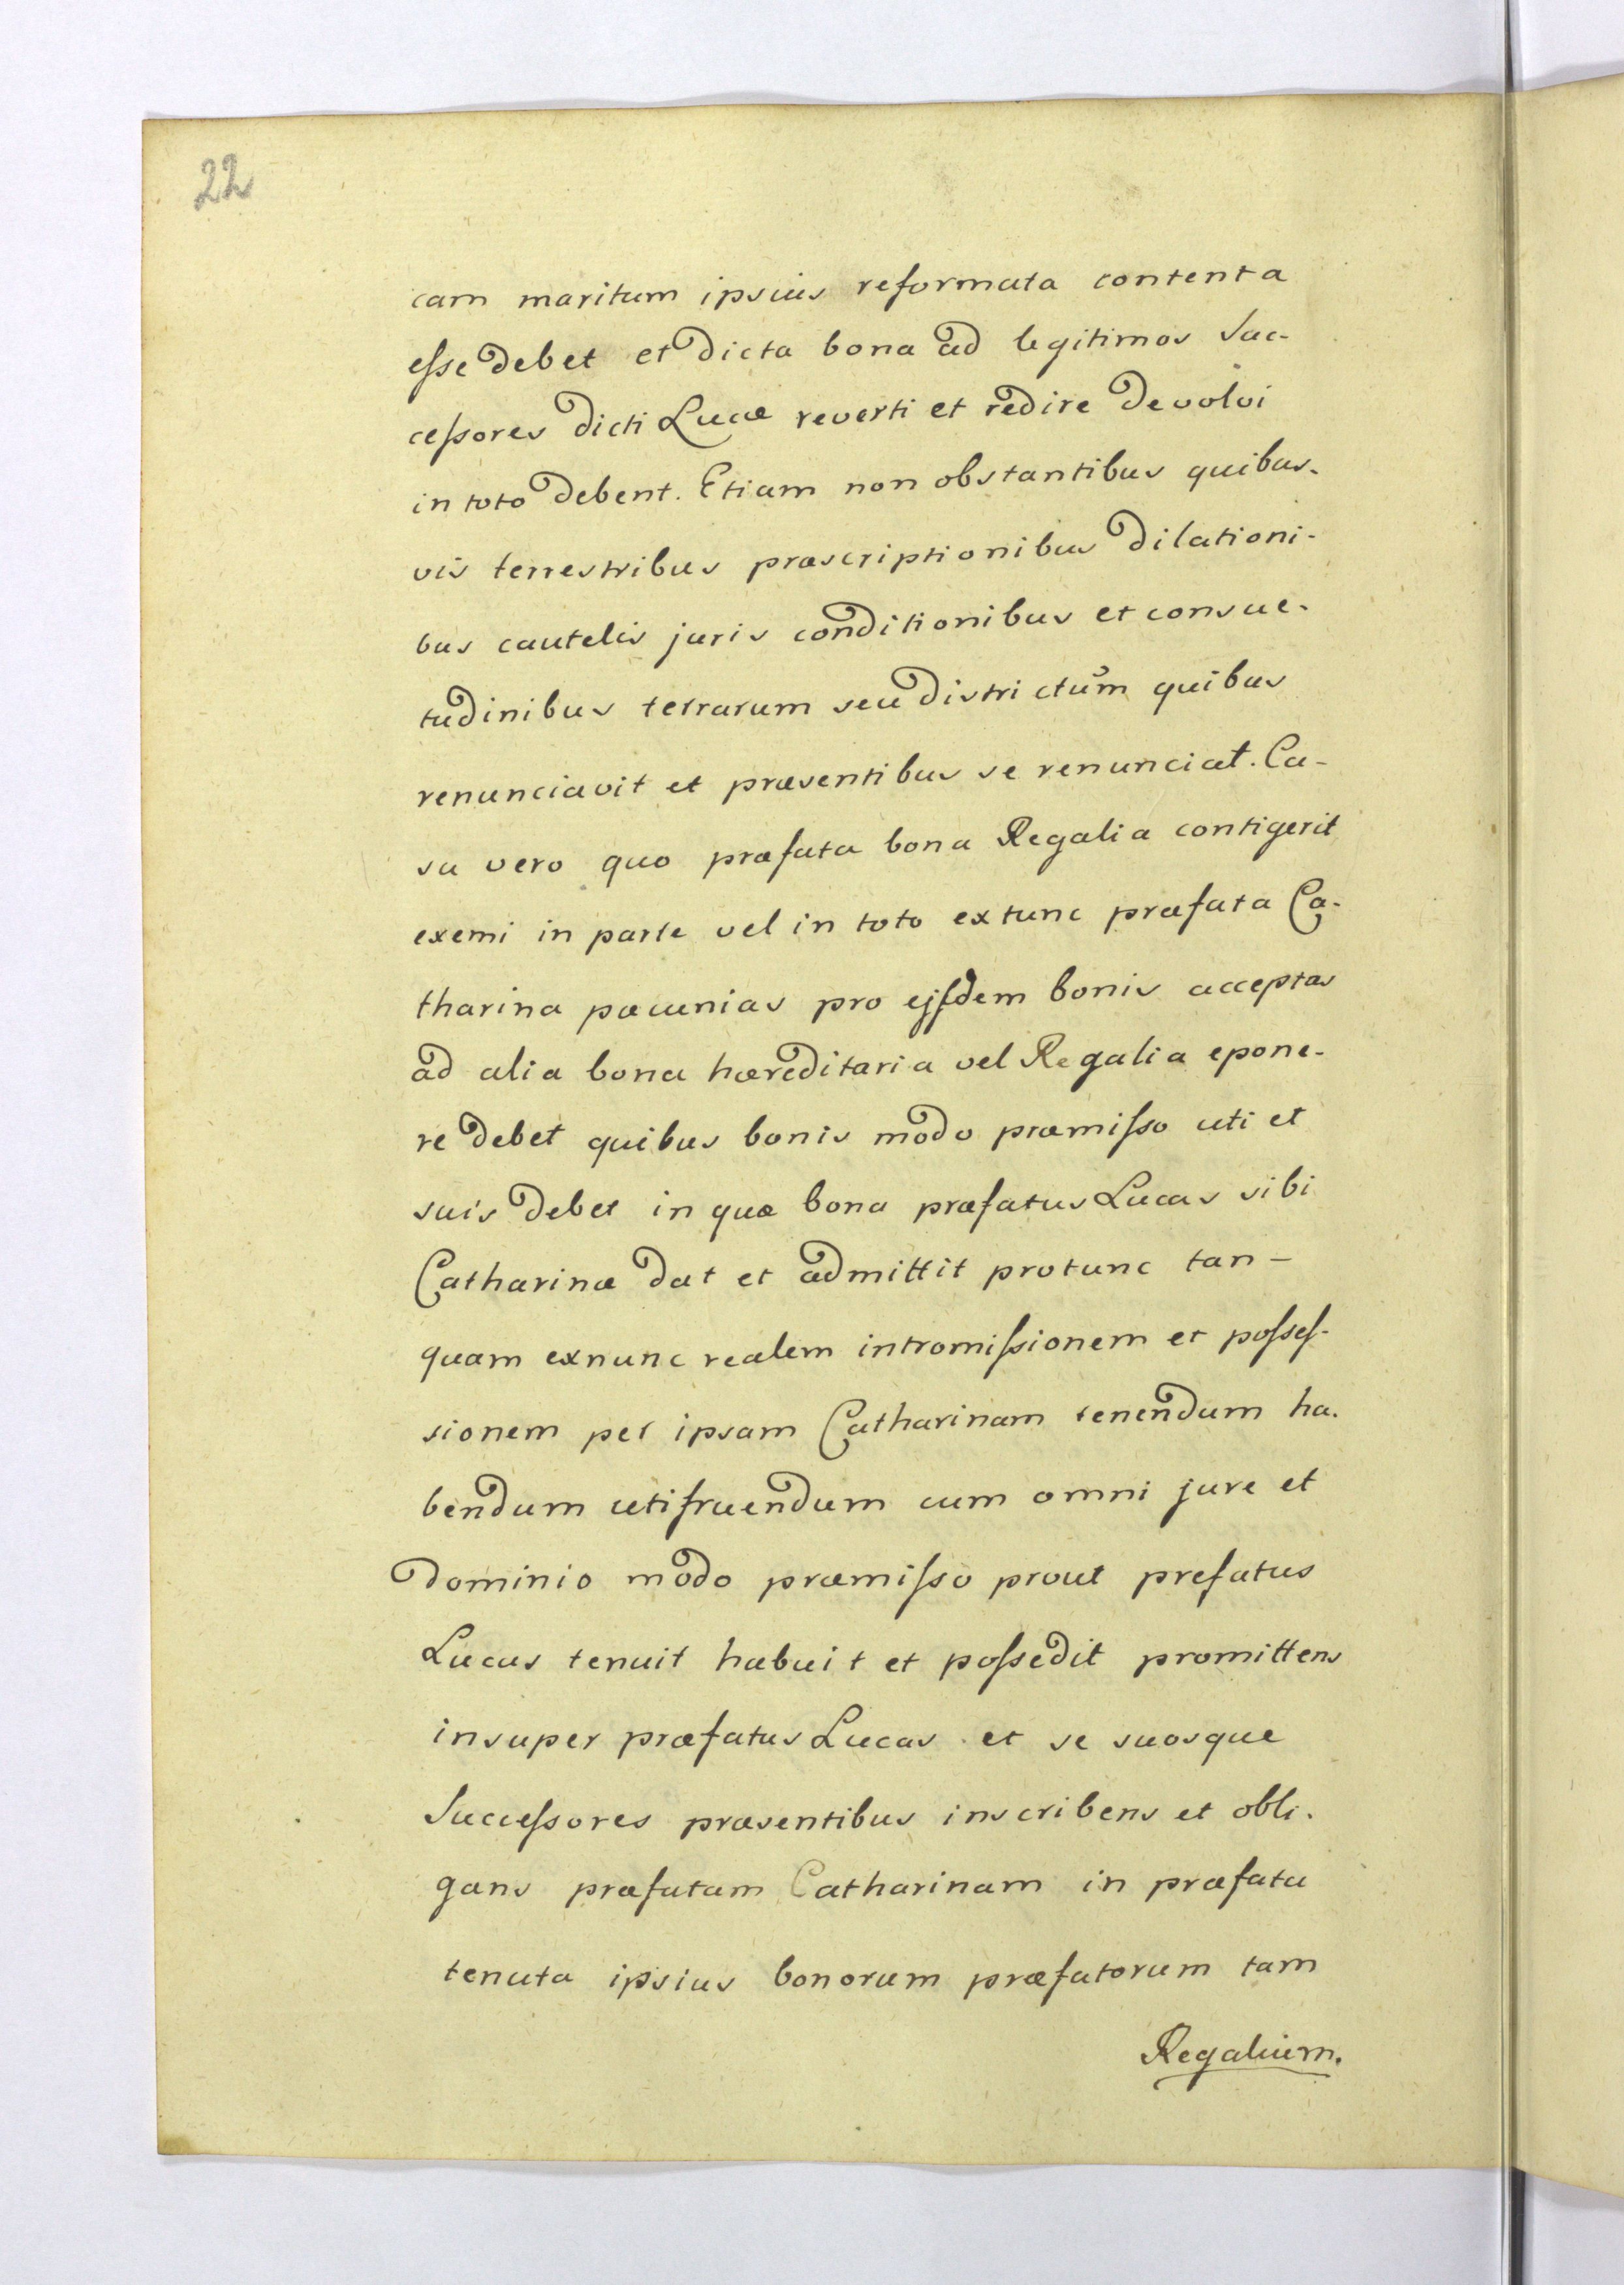 22
cam maritum ipsius reformata contenta
eſse debet et dicta bona ad legitimos Suc-
ceſsores dicti Lucæ reverti et redire devolvi
in toto debent. Etiam non obstantibus quibus-
vis terrestribus præscriptionibus dilationi-
bus cautelis juris conditionibus et consue-
tudinibus terrarum seu districtum quibus
renunciavit et præsentibus se renunciat. Ca-
su vero quo præfata bona Regalia contigerit
exemi in parte vel in toto extunc præfata Ca-
tharina pæcunias pro ejſdem bonis acceptas
ad alia bona hæreditaria vel Regalia epone-
re debet quibus bonis modo præmiſso uti et
suis debet in quæ bona præfatus Lucas sibi
Catharinæ dat et admittit protunc tan-
quam exnunc realem intromiſsionem et poſseſ-
sionem per ipsam Catharinam tenendum ha-
bendum utifruendum cum omni jure et
dominio modo præmiſso prout prefatus
Lucas tenuit habuit et poſsedit promittens
insuper præfatus Lucas et se suosque
Succeſsores præsentibus inscribens et obli-
gans præfatam Catharinam in præfata
tenuta ipsius bonorum præfatorum tam
Regalium.